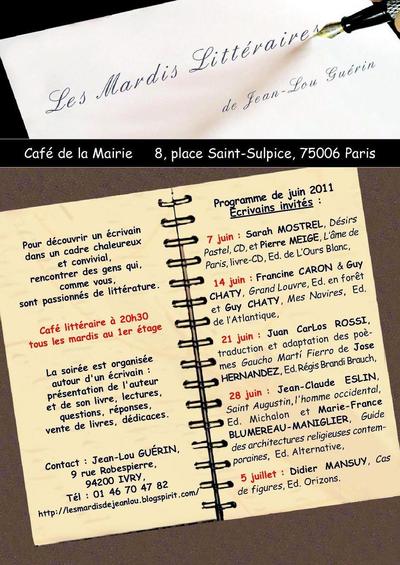 Les Mardis Littéraires
de Jean-Lou Guérin
Café de la Mairie 8, place Saint-Sulpice, 75006 Paris
Pour découvrir un écrivain
dans un cadre chaleureux
et convivial,
rencontrer des gens qui,
comme vous,
sont passionnés de littérature.
Café littéraire à 20h30
tous les mardis au 1er étage
La soirée est organisée
autour d'un écrivain :
présentation de l'auteur
et de son livre, lectures,
questions, réponses,
vente de livres, dédicaces.
Contact : Jean-Lou GUÉRIN,
9 rue Robespierre,
94200 IVRY,
Tél : 01 46 70 47 82
http://lesmardisdejeanlou.blogspirit.com/
Programme de juin 2011
Écrivains invités :
7 juin : Sarah MOSTREL, Désirs
Pastel, CD, et Pierre MEIGE, L'âme de
Paris, livre-CD, Ed. de L'Ours Blanc,
14 juin : Francine CARON & Guy
CHATY, Grand Louvre, Ed. en forêt
et Guy CHATY, Mes Navires, Ed.
de l'Atlantique,
21 juin : Juan CarLos ROSSI,
traduction et adaptation des poè-
mes Gaucho Martí Fierro de Jose
HERNANDEZ, Ed. Régis Brandi Brauch,
28 juin : Jean-Claude ESLIN,
Saint Augustin, l'homme occidental,
Ed. Michalon et Marie-France
BLUMEREAU-MANIGLIER, Guide
des architectures religieuses contem-
poraines, Ed. Alternative,
5 juillet : Didier MANSUY, Cas
de figures, Ed. Orizons.